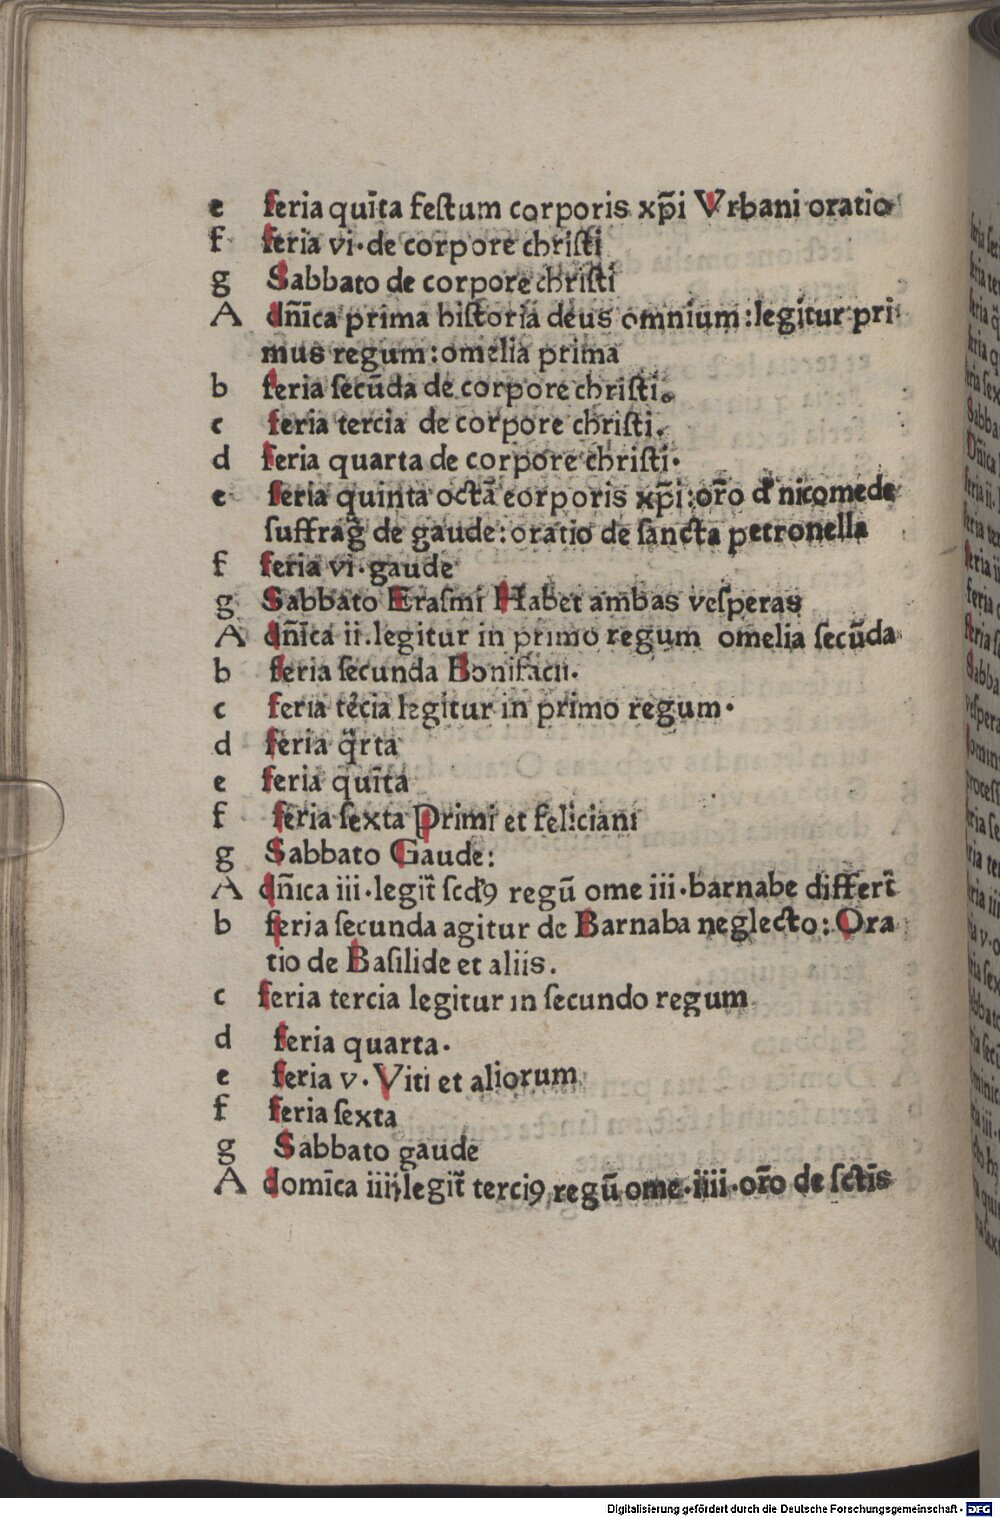 e feria quīta feſtum corporis xp̄i Vrbani oratio
f feria vi·de corpore chriſti
g Sabbato de corpore chriſti
A dn̄ica prima hiſtoria deus omnium:legitur pri
mus regum:omelia prima
b feria ſecūda de corpore chriſti.
c feria tercia de corpore chriſti.
d feria quarta de corpore chriſti·
e feria quinta octā eorporis xp̄i:or̄o d nicomede
ſuffraḡ de gaude:oratio de ſancta petronella
f feria vi·gaude
g Sabbato Eraſmi Habet ambas veſperas
A dn̄ica ii.legitur in primo regum omelia ſecūda
b feria ſecunda Bonifacii.
c feria tēcia legitur in primo regum·
d feria q̄rta
e feria quīta
f feria ſexta Primi et feliciani
g Sabbato Gaude:
A dn̄ica iii·legit̄ ſcdꝰ regū ome iii·barnabe differt̄
b feria ſecunda agitur de Barnaba neglecto:Ora
tio de Baſilide et aliis.
c feria tercia legitur in ſecundo regum
d feria quarta·
e feria v·Viti et aliorum
f feria ſexta
g Sabbato gaude
A domīca iiii legit̄ terciꝰ regū ome·iiii·or̄o de ſctīs
Digitalisierung gefördert durch die Deutsche Forschungsgemeinschaft - DFG